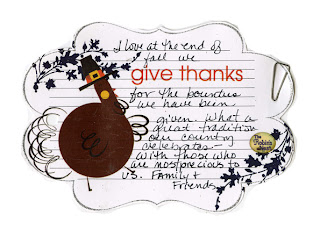 I love at the end
of fall we
give thanks
for the bounties
we have been
given. What a
great tradition
our country
celebrates-
with those who
are most precious to
us. Family &
Friends
The Robin's